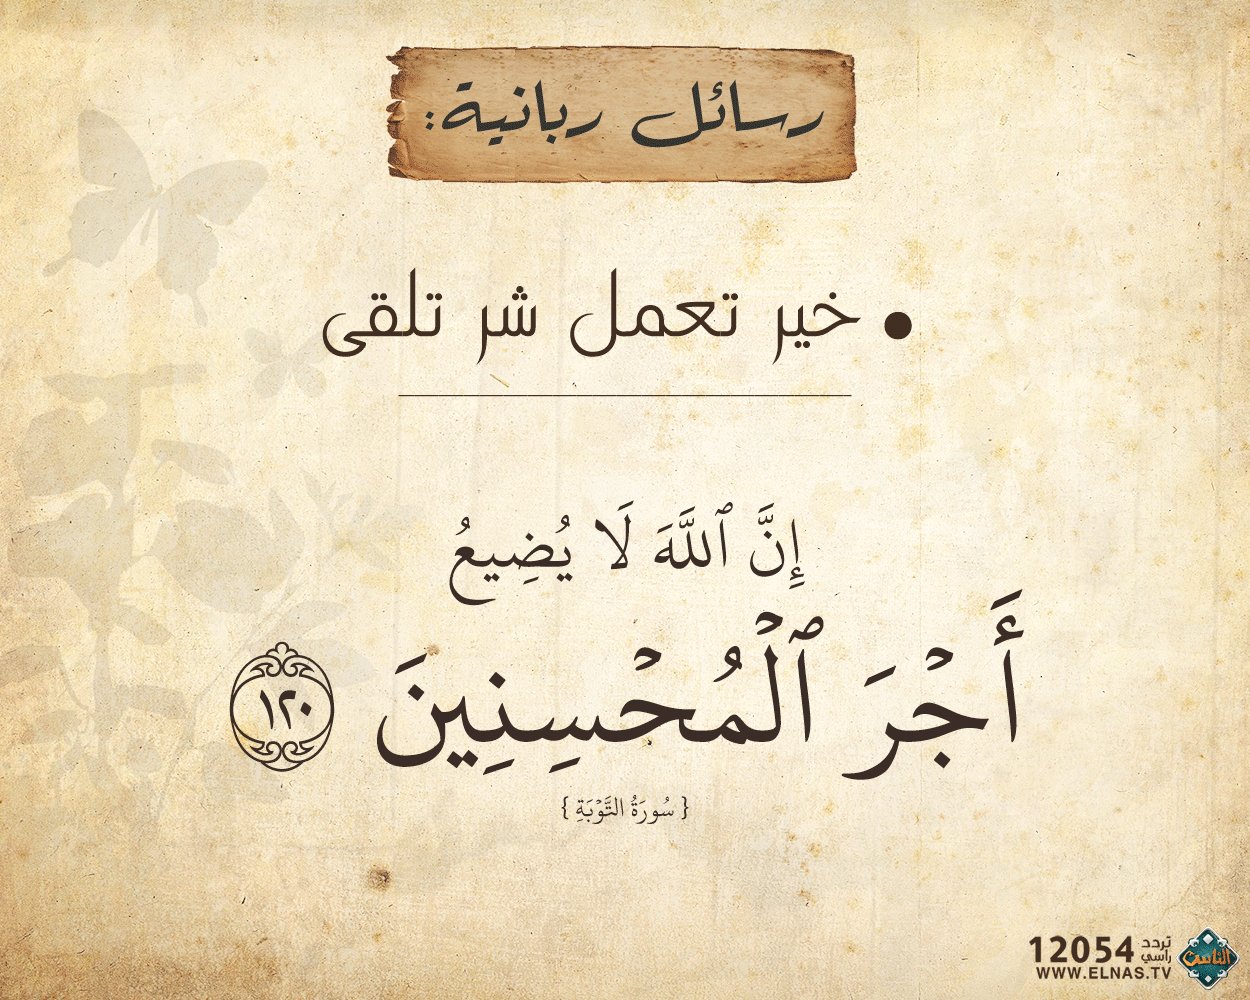 رسائل ربانية:
• خير تعمل شر تلقى
إِنَّ ٱللَّهَ لَا يُضِيعُ
أَجْرَ ٱلْمُحْسِنِينَ ١٢٠
{ سُورَةُ التَّوْبَةِ }
تردد
راسي
12054
WWW.ELNAS.TV
الناس